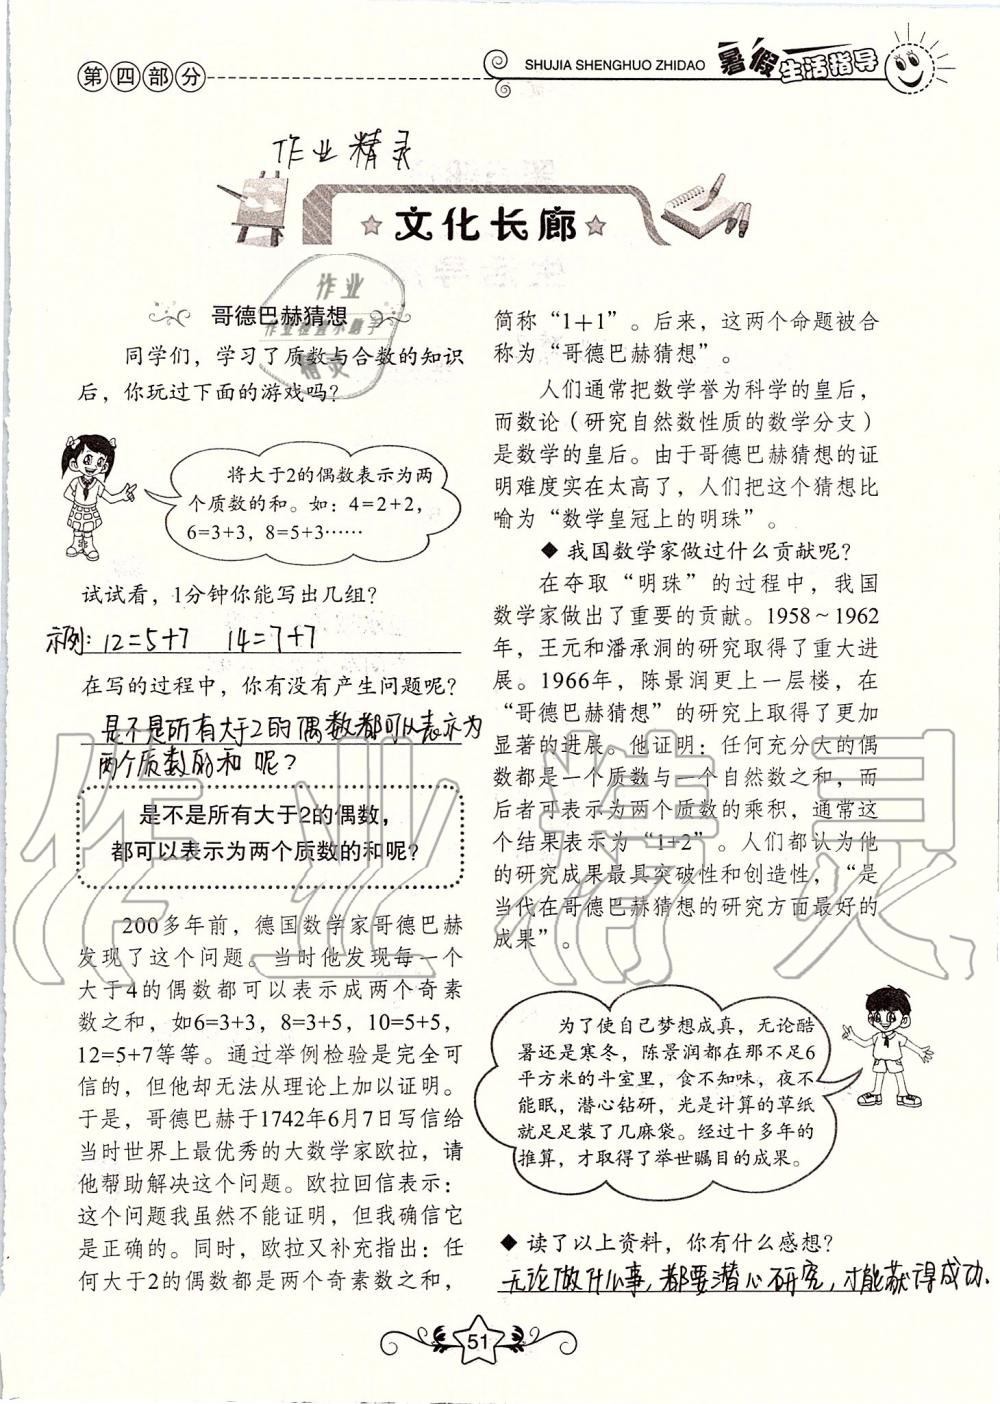 第四部分
SHUJIA SHENGHUO ZHIDAO
暑假生活指导
作业精灵
文化长廊
作业
作业检查小助手
精灵
哥德巴赫猜想
同学们，学习了质数与合数的知识
后，你玩过下面的游戏吗？
将大于2的偶数表示为两
个质数的和。如：4=2+2，
6=3+3，8=5+3……
试试看，1分钟你能写出几组？
示例：12=5+7 14=7+7
在写的过程中，你有没有产生问题呢？
是不是所有大于2的偶数都可以表示为
两个质数的和呢？
是不是所有大于2的偶数，
都可以表示为两个质数的和呢？
200多年前，德国数学家哥德巴赫
发现了这个问题。当时他发现每一个
大于4的偶数都可以表示成两个奇素
数之和，如6=3+3，8=3+5，10=5+5，
12=5+7等等。通过举例检验是完全可
信的，但他却无法从理论上加以证明。
于是，哥德巴赫于1742年6月7日写信给
当时世界上最优秀的大数学家欧拉，请
他帮助解决这个问题。欧拉回信表示：
这个问题我虽然不能证明，但我确信它
是正确的。同时，欧拉又补充指出：任
何大于2的偶数都是两个奇素数之和，
简称“1+1”。后来，这两个命题被合
称为“哥德巴赫猜想”。
人们通常把数学誉为科学的皇后，
而数论（研究自然数性质的数学分支）
是数学的皇后。由于哥德巴赫猜想的证
明难度实在太高了，人们把这个猜想比
喻为“数学皇冠上的明珠”。
◆ 我国数学家做过什么贡献呢？
在夺取“明珠”的过程中，我国
数学家做出了重要的贡献。1958～1962
年，王元和潘承洞的研究取得了重大进
展。1966年，陈景润更上一层楼，在
“哥德巴赫猜想”的研究上取得了更加
显著的进展。他证明：任何充分大的偶
数都是一个质数与一个自然数之和，而
后者可表示为两个质数的乘积，通常这
个结果表示为“1+2”。人们都认为他
的研究成果最具突破性和创造性，“是
当代在哥德巴赫猜想的研究方面最好的
成果”。
为了使自己梦想成真，无论酷
暑还是寒冬，陈景润都在那不足6
平方米的斗室里，食不知味，夜不
能眠，潜心钻研，光是计算的草纸
就足足装了几麻袋。经过十多年的
推算，才取得了举世瞩目的成果。
◆ 读了以上资料，你有什么感想？
无论做什么事，都要潜心研究，才能获得成功.
作业精灵
51